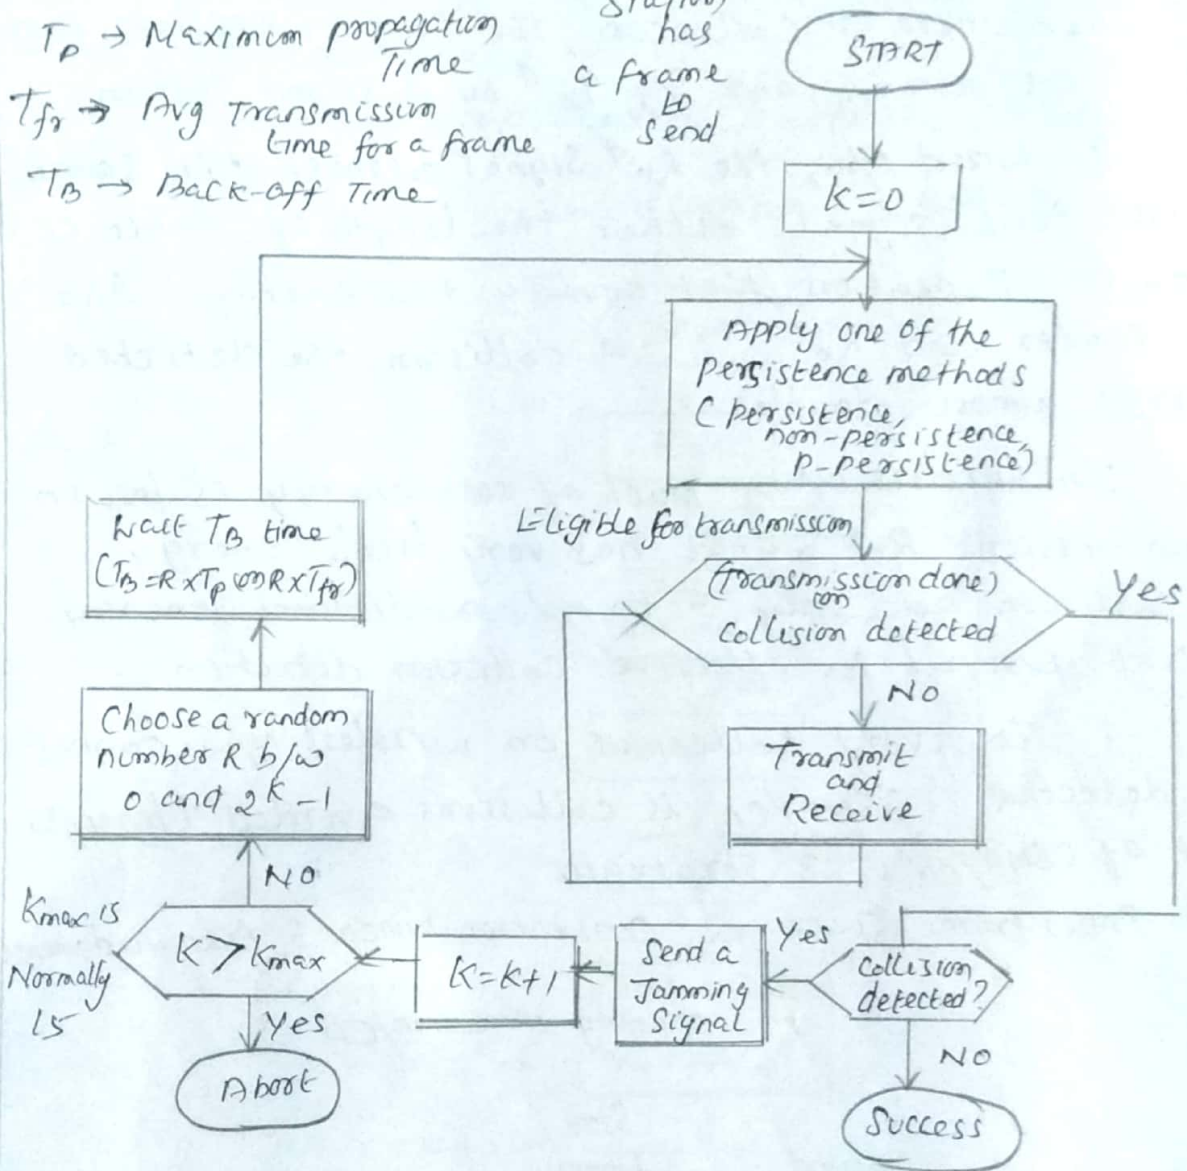 Tp → Maximum propagation
Time
Tfr → Avg Transmission
time for a frame
TB → Back-off Time
Station
has
a frame
to
send
START
K=0
Apply one of the
persistence methods
(persistence,
non-persistence,
p-persistence)
Eligible for transmission
(Transmission done)
or
Collision detected
Yes
NO
Transmit
and
Receive
Collision
detected?
Yes
NO
Success
Send a
Jamming
Signal
K=K+1
K > Kmax
Kmax is
Normally
15
Yes
Abort
NO
Choose a random
number R b/w
0 and 2^K-1
Wait TB time
(TB=R×Tp or R×Tfr)